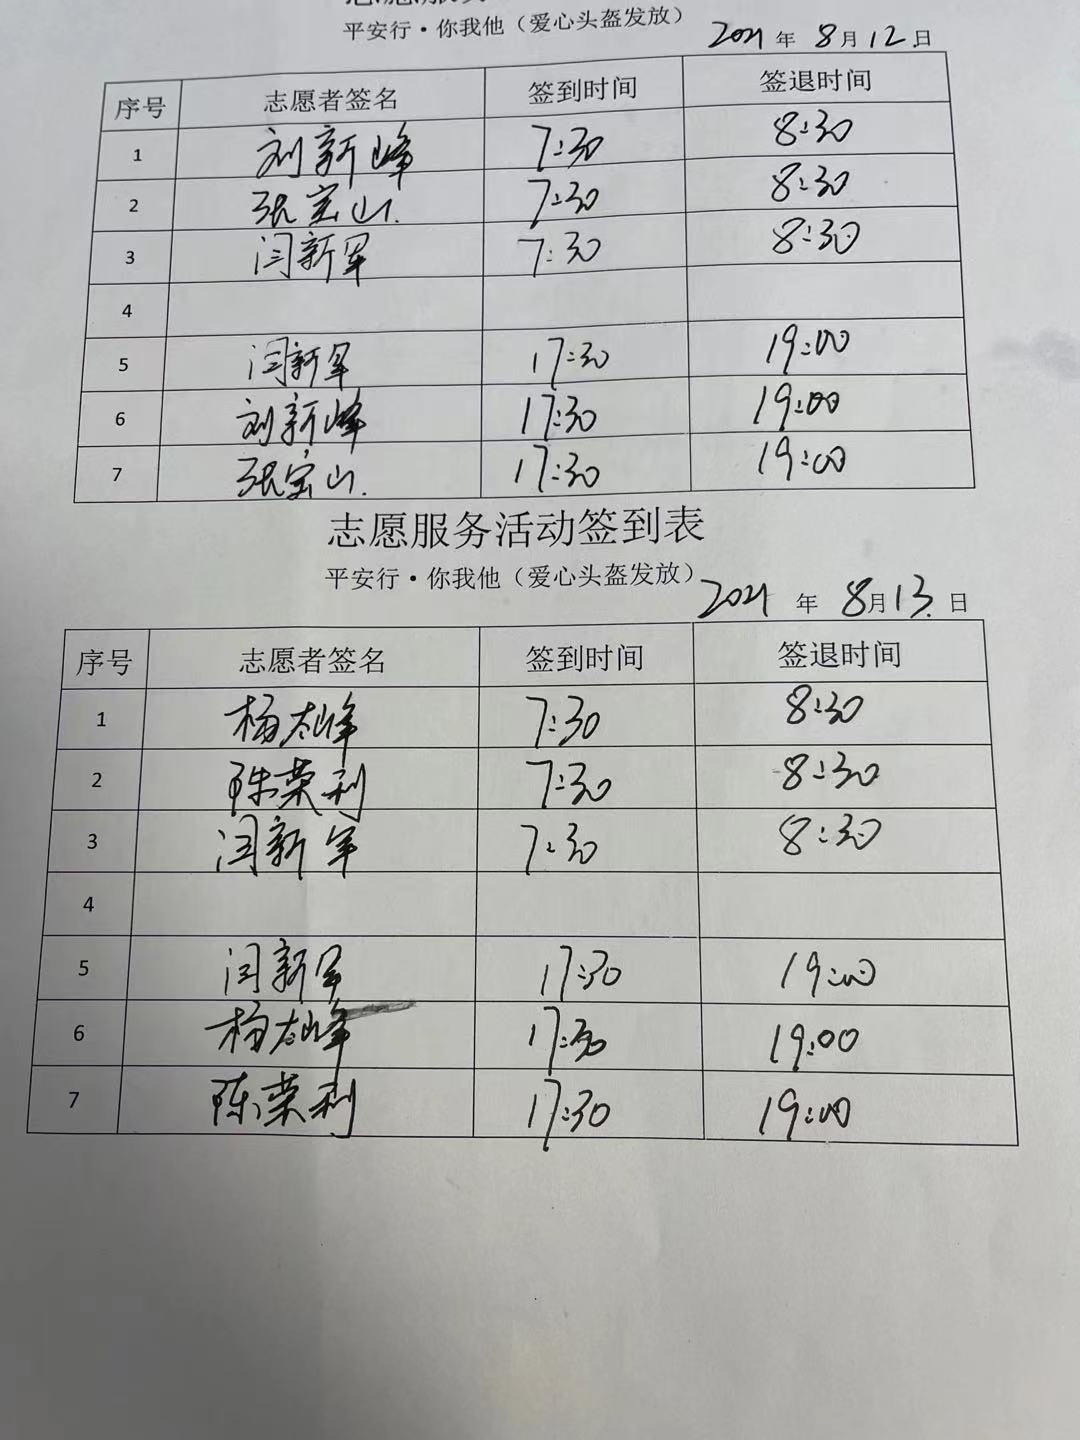 平安行·你我他（爱心头盔发放）
2021年 8月12日
序号 志愿者签名 签到时间 签退时间
1 刘新峰 7:30 8:30
2 张宝山. 7:30 8:30
3 闫新军 7:30 8:30
4
5 闫新军 17:30 19:00
6 刘新峰 17:30 19:00
7 张宝山. 17:30 19:00
志愿服务活动签到表
平安行·你我他（爱心头盔发放）
2021 年 8月13.日
序号 志愿者签名 签到时间 签退时间
1 杨太峰 7:30 8:30
2 陈荣利 7:30 8:30
3 闫新军 7:30 8:30
4
5 闫新军 17:30 19:00
6 杨太峰 17:30 19:00
7 陈荣利 17:30 19:00